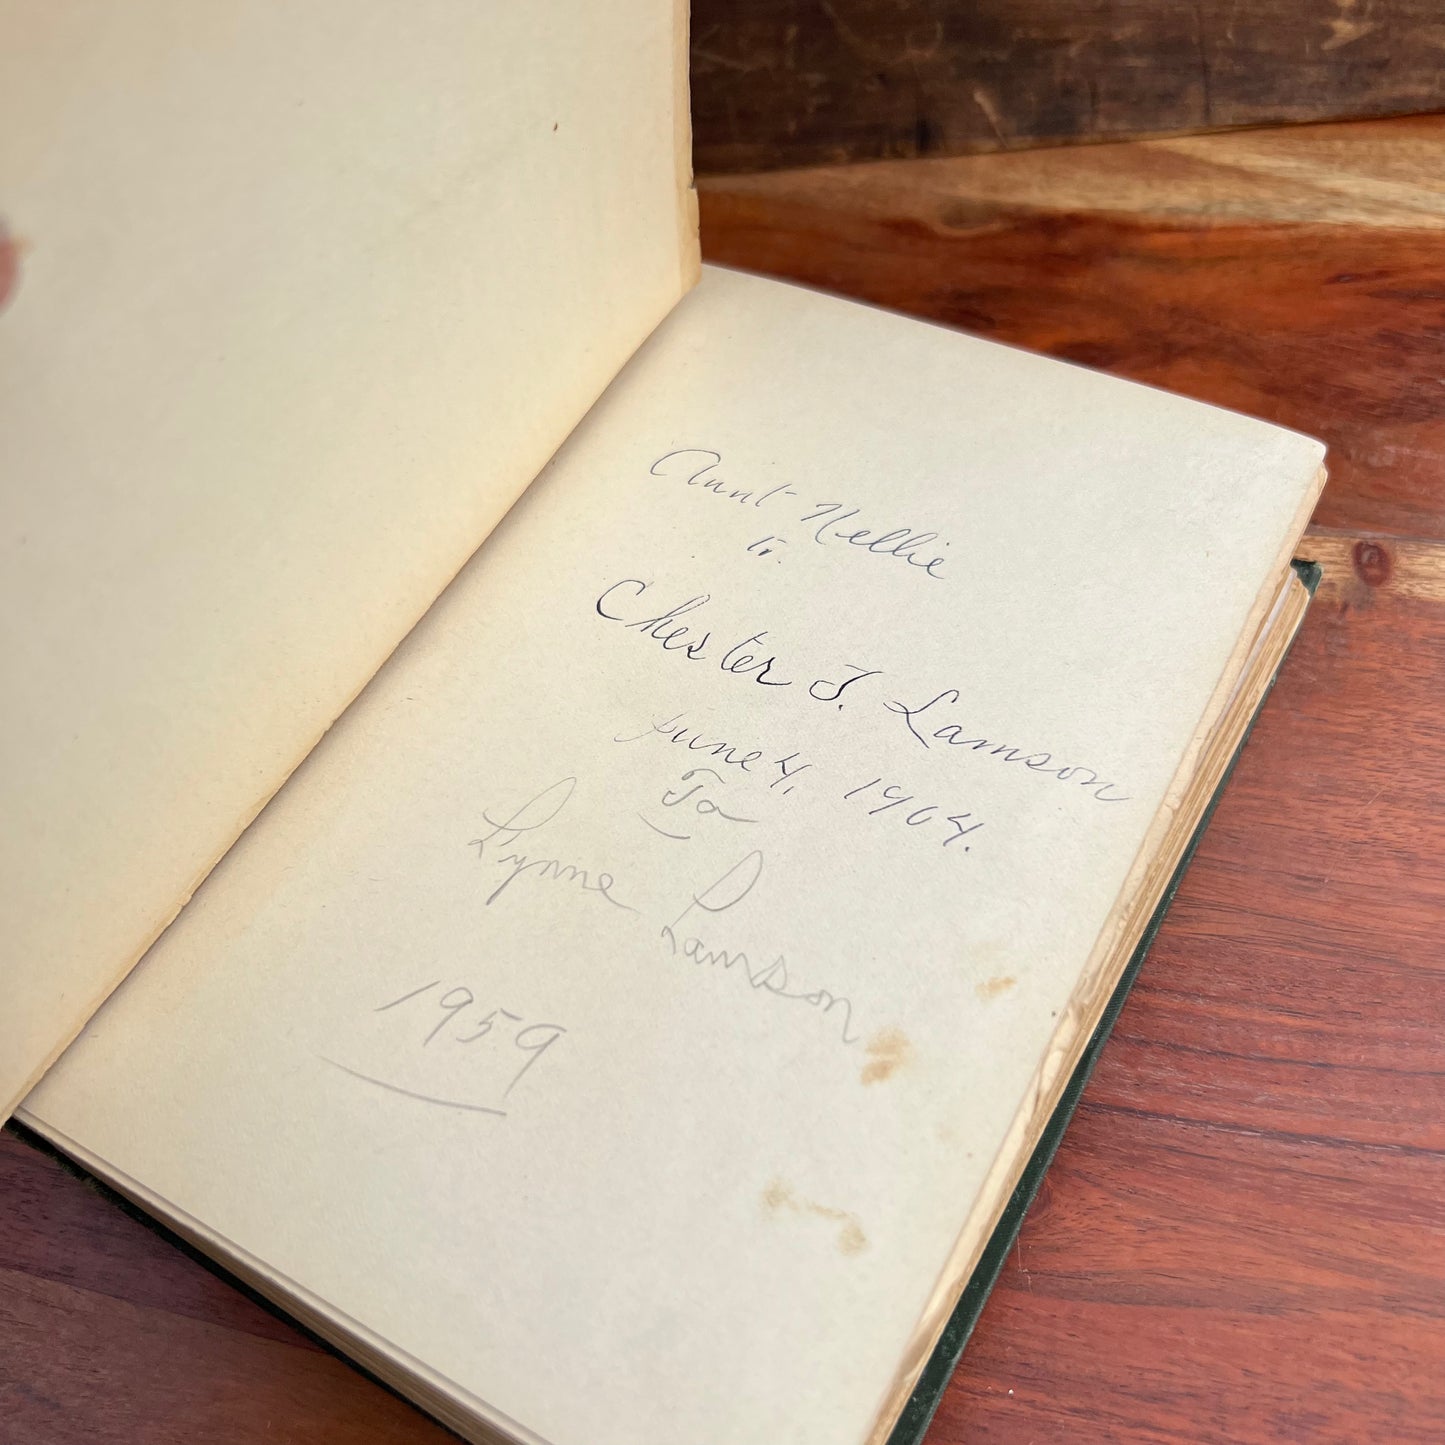 Aunt Nellie
to
Chester T. Lamson
June 4, 1904.
To
Lynne Lamson
1959